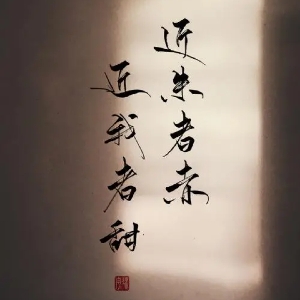 近朱者赤
近我者甜